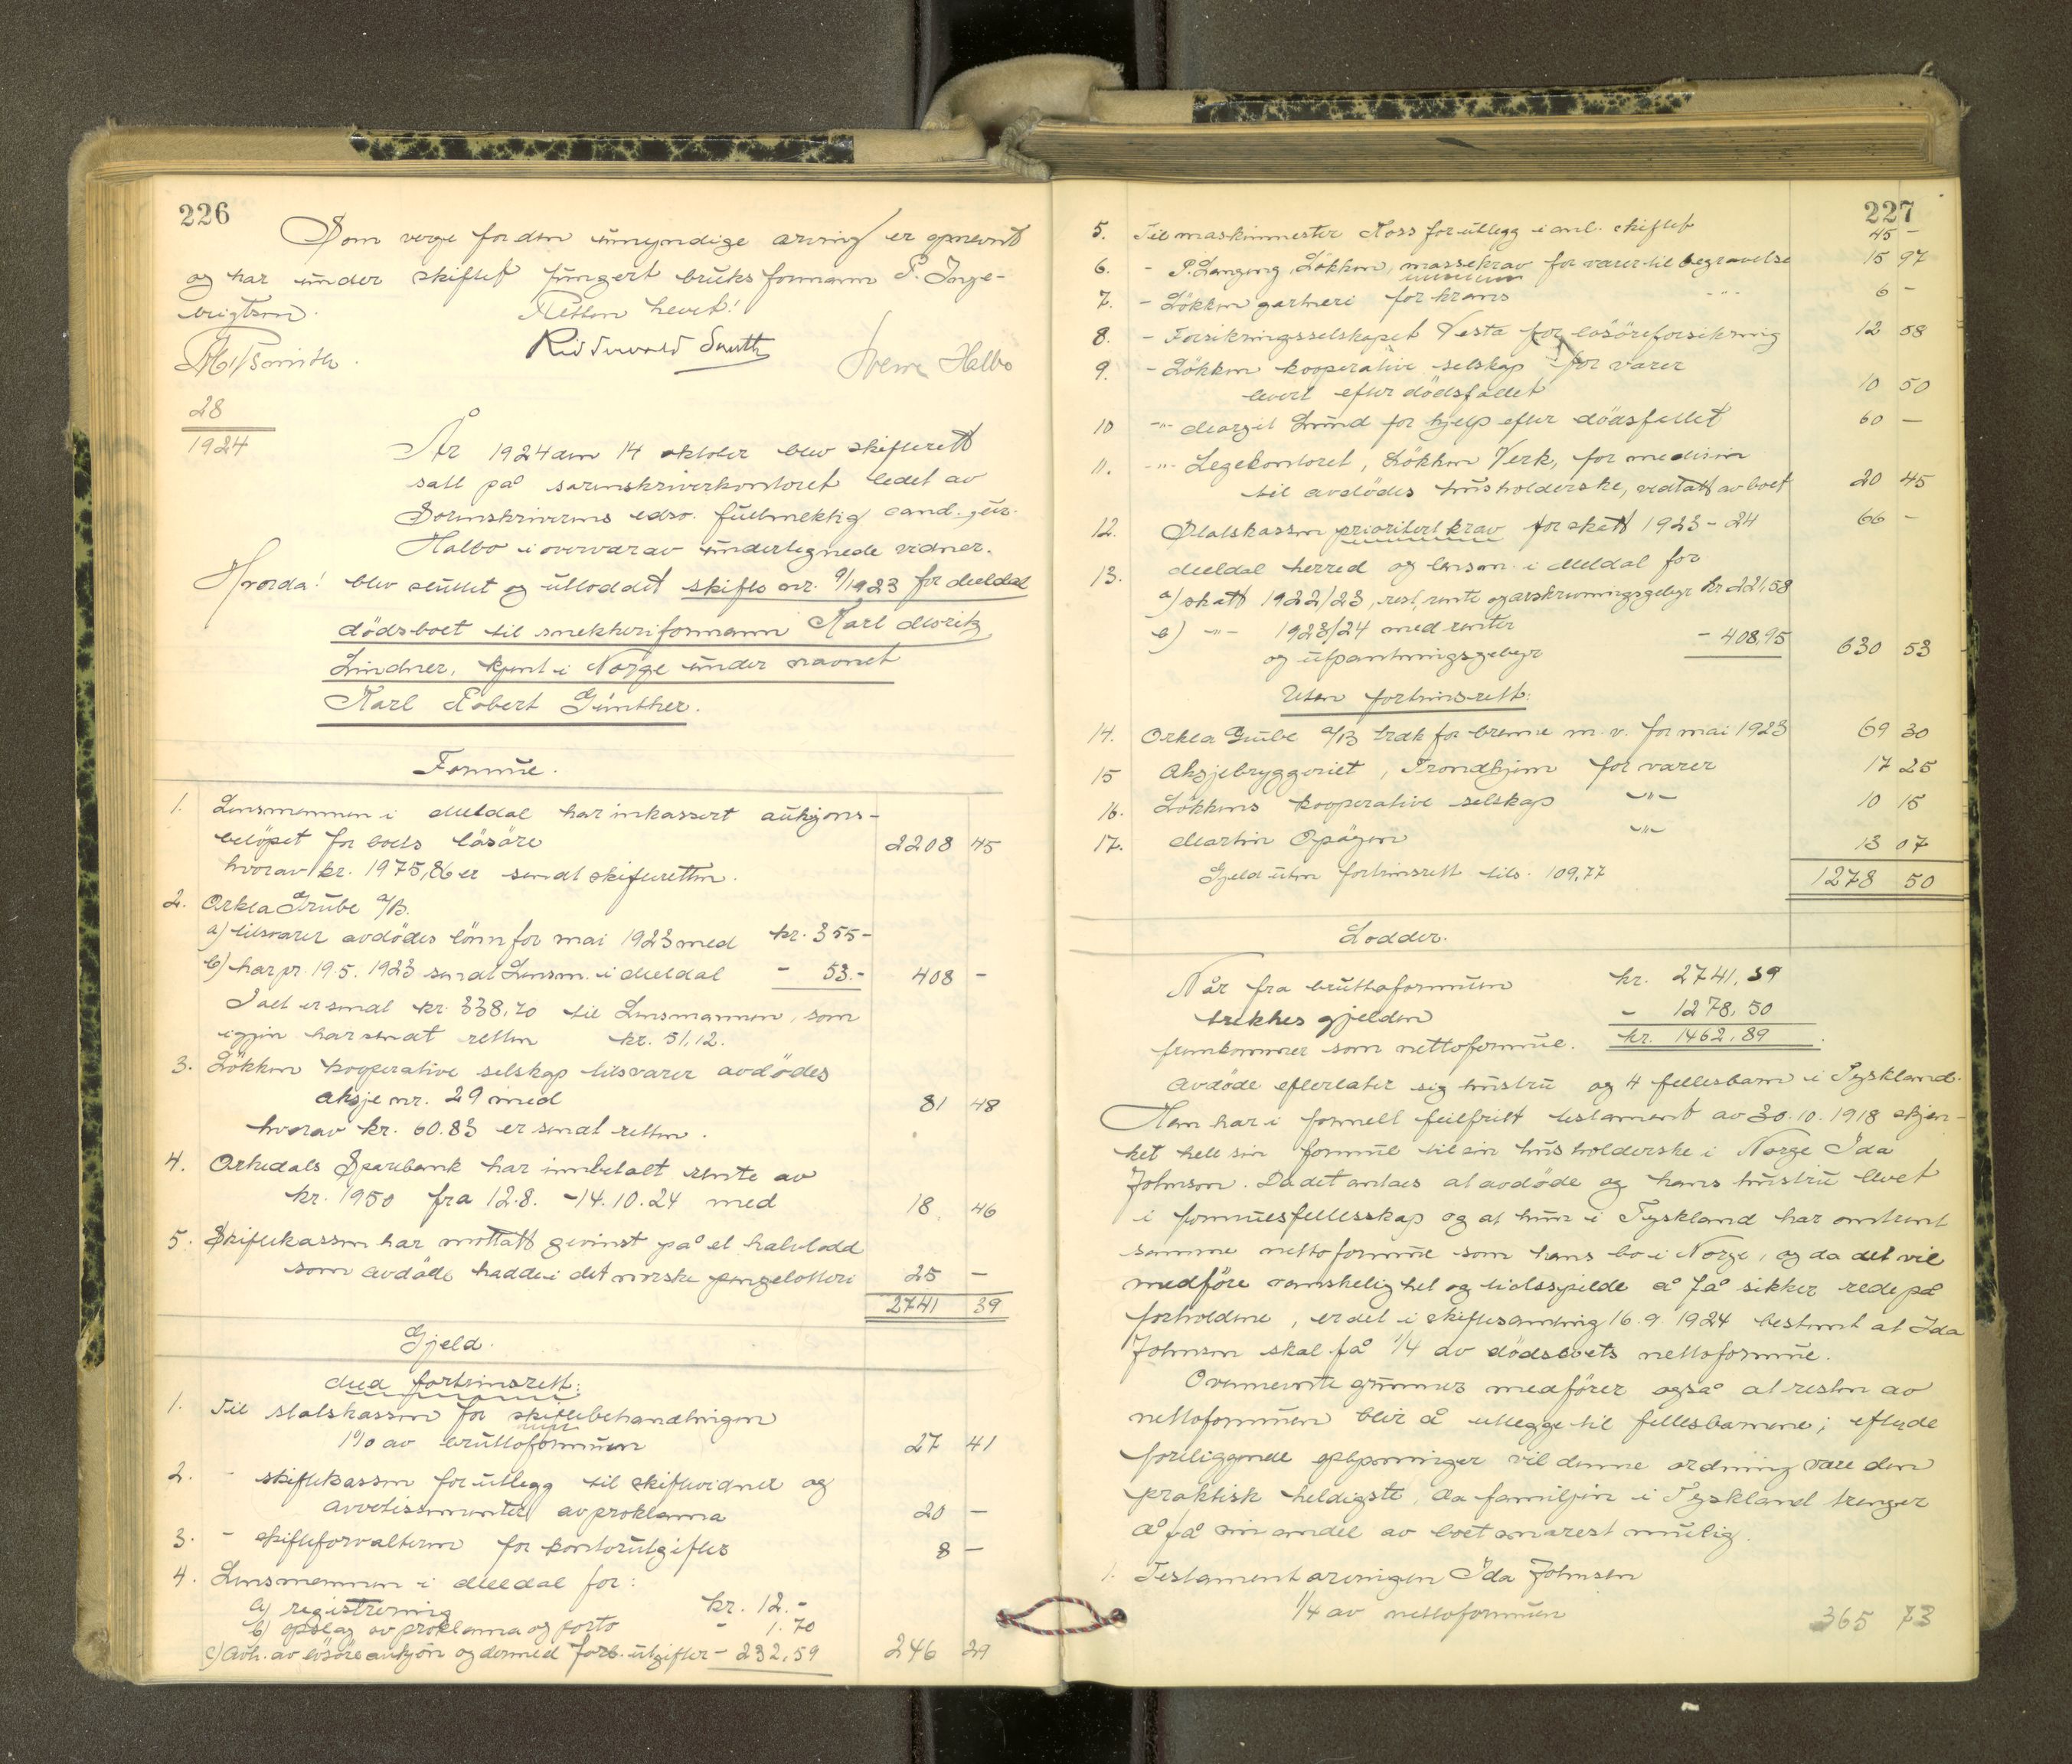 226
Som verge for den umyndige arving er opnevnt
og har under skiftet fungert bruksformann P. Inge-
brigtsen. Retten hevet!
Sverre Halbo
28
1924
År 1924 den 14 oktober blev skifterett
satt på sorenskriverkontoret ledet av
Sorenskriverens edsv. fullmektig cand. jur.
Halbo i overvær av undertegnede vidner.
Hvorda! blev sluttet og utloddet skifte nr. 9/1923 for Meldal
dödsboet til snekkerformann Karl Moritz
Lindner, kjent i Norge under navnet
Karl Robert Günther.
Formue.
1. Lensmannen i Meldal har inkassert auksjons-
belöpet for boets lösöre 2208 45
hvorav kr. 1975,86 er sendt skifteretten.
2. Orkla Grube A/B.
a) tilsvarer avdödes lönn for mai 1923 med kr. 355-
b) har pr. 19.5.1923 sendt Lensm. i Meldal - 53.- 408 -
I alt er sendt kr. 338,70 til Lensmannen, som
igjen har sendt retten kr. 51,12.
3. Lökken kooperative selskap tilsvarer avdödes
aksje nr. 29 med 81 48
hvorav kr. 60.83 er sendt retten.
4. Orkedals Sparebank har innbetalt rente av
kr. 1950 fra 12.8. - 14.10.24 med 18 46
5. Skiftekassen har mottatt gevinst på et halvlodd
som avdöde hadde i det norske pengelotteri 25 -
2741 39
Gjeld.
Med fortrinsrett:
1. Til statskassen for skiftebehandlingen
1% av bruttoformuen 27 41
2. - skiftekassen for utlegg til skiftevidner og
avertissementer av proklama 20 -
3. - skifteforvalteren for kontorutgifter 8 -
4. Lensmannen i Meldal for:
a) registrering kr. 12.-
b) opslag av proklama og porto - 1.70
c) avh. av lösöreauksjon og dermed forb. utgifter - 232,59 246 29
227
5. Til maskinmester Moss for utlegg i anl. skiftet 45 -
6. - P. Langeng, Lökken, massekrav for varer til begravelse 15 97
7. - Lökken gartneri for krans -"- 6 -
8. - Forsikringsselskapet Vesta for lösöreforsikring 12 58
9. - Lökken kooperative selskap for varer
levert efter dödsfallet 10 50
10 -"- Margit Lund for hjelp efter dödsfallet 60 -
11. -"- Legekontoret, Lökken Verk, for medisin
til avdödes husholderske, vedtatt av boet 20 45
12. Statskassen prioritert krav for skatt 1923-24 66 -
13. Meldal herred og lensm. i Meldal for
a) skatt 1922/23, rest, rente og avskrivningsgebyr kr 221,58
b) -"- 1923/24 med renter
og utpantningsgebyr - 408,95 630 53
Uten fortrinsrett:
14. Orkla Grube A/B træk for brenne m. v. for mai 1923 69 30
15 Aksjebryggeriet, Trondhjem for varer 17 25
16. Lökkens kooperative selskap -"- 10 15
17. Martin Opöyen -"- 13 07
Gjeld uten fortrinsrett tils. 109,77 1278 50
Lodder.
Når fra bruttoformuen kr. 2741,39
trekkes gjelden - 1278,50
fremkommer som nettoformue. kr. 1462,89
Avdöde efterlater sig hustru og 4 fellesbarn i Tyskland.
Han har i formell feilfritt testament av 30.10.1918 skjen-
ket hele sin formue til sin husholderske i Norge Ida
Johnsen. Da det antaes at avdöde og hans hustru levet
i formuesfellesskap og at hun i Tyskland har omtrent
samme nettoformue som hans bo i Norge, og da det vil
medföre vanskelighet og tidsspilde å få sikker rede på
forholdene, er det i skiftesamling 16.9.1924 bestemt at Ida
Johnsen skal få 1/4 av dödsboets nettoformue.
Ovennevnte grunner medförer også at resten av
nettoformuen blir å utlegge til fellesbarnene; efter de
foreliggende oplysninger vil denne ordning være den
praktisk heldigste, da familjen i Tyskland trenger
å få sin andel av boet snarest mulig.
1. Testamentarvingen Ida Johnsen
1/4 av nettoformuen 365 73